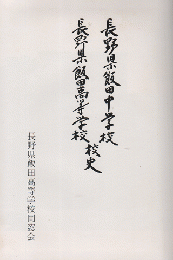 長野県飯田中学校
長野県飯田高等学校 校史
長野県飯田高等学校同窓会